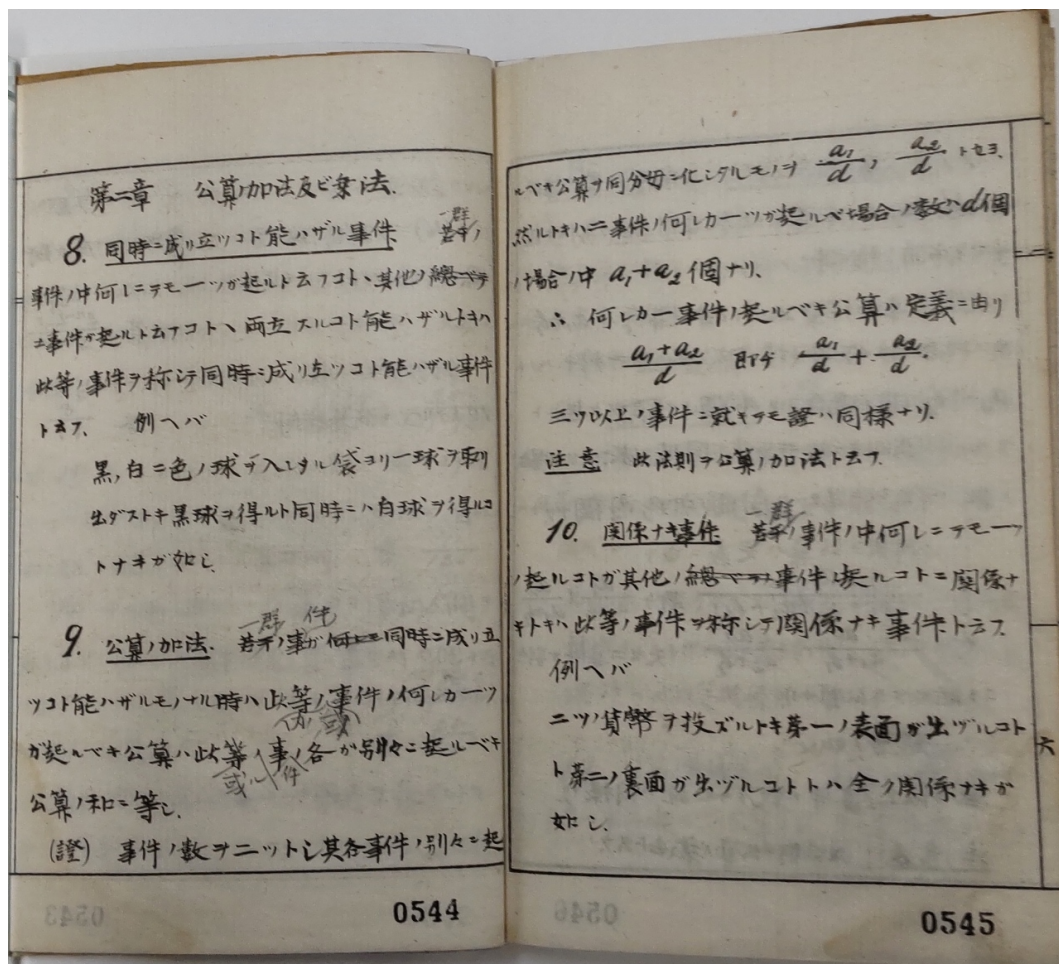 第二章 公算ノ加法及ビ乗法.
8. 同時ニ成リ立ツコト能ハザル事件 一群ノ
事件ノ中何レニテモ一ツガ起ルト云フコト、其他ノ總ベテ
ニ事件ガ起ルト云フコトヽ両立スルコト能ハザルトキハ
此等ノ事件ヲ称シテ同時ニ成リ立ツコト能ハザル事件
ト云フ. 例ヘバ
黒,白二色ノ球ヲ入レタル袋ヨリ一球ヲ取リ
出ダストキ黒球ヲ得ルト同時ニハ白球ヲ得ルコ
トナキガ如シ.
9. 公算ノ加法. 一群ノ事件ガ同時ニ成リ立
ツコト能ハザルモノナル時ハ此等ノ事件ノ何レカ一ツ
ガ起ルベキ公算ハ此等ノ事ノ各ガ別々ニ起ルベキ
公算ノ和ニ等シ.
(證) 事件ノ数ヲ二ツトシ其各事件ノ別々ニ起
0544
ルベキ公算ヲ同分母ニ化シタルモノヲ a₁/d, a₂/d トセヨ.
然ルトキハ二事件ノ何レカ一ツガ起ルベキ場合ノ数ハd個
ノ場合ノ中 a₁+a₂ 個ナリ.
∴ 何レカ一事件ノ起ルベキ公算ハ定義ニ由リ
(a₁+a₂)/d 即チ a₁/d + a₂/d.
三ツ以上ノ事件ニ就キテモ證ハ同様ナリ.
注意 此法則ヲ公算ノ加法ト云フ.
10. 関係ナキ事件 一群ノ事件ノ中何レニテモ一ツ
ノ起ルコトガ其他ノ總ベテノ事件ノ起ルコトニ関係ナ
キトキハ此等ノ事件ヲ称シテ関係ナキ事件ト云フ.
例ヘバ
二ツノ貨幣ヲ投ズルトキ第一ノ表面ガ出ヅルコト
ト第二ノ裏面ガ出ヅルコトトハ全ク関係ナキガ
如シ.
六
0545